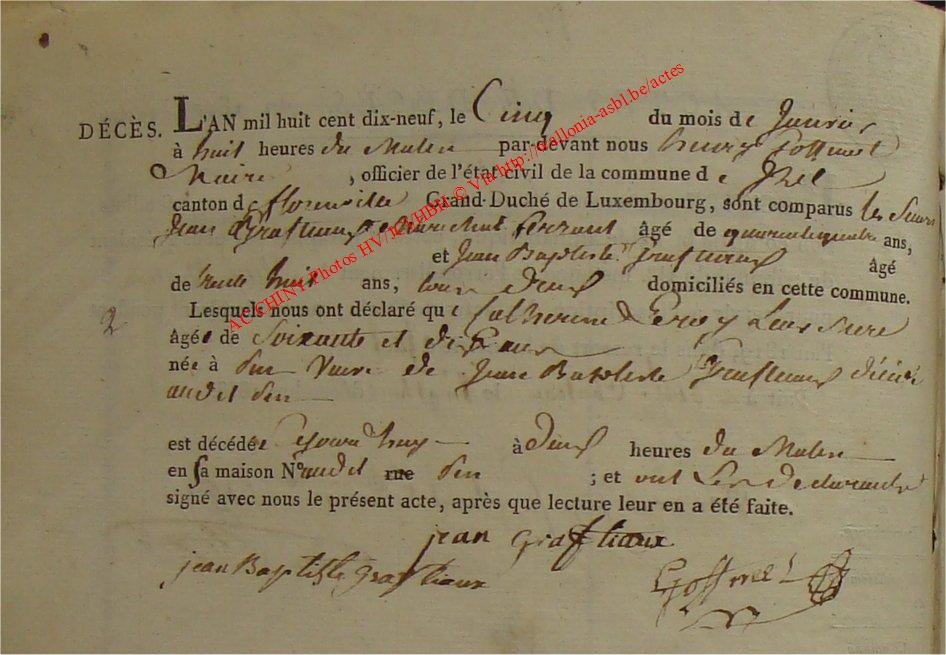 DÉCÈS. L'AN mil huit cent dix-neuf, le Cinq du mois de Janvier
à huit heures du Matin par-devant nous henry Goffinet
Maire, officier de l'état civil de la commune de Izel
canton de florenville Grand-Duché de Luxembourg, sont comparus les Sieurs
Jean Graftiaux âgé de quarante quatre ans,
et Jean Baptiste Graftiaux âgé
de trente huit ans, tous deux domiciliés en cette commune.
2 Lesquels nous ont déclaré que Catherine Leroy Leur mere
âgée de Soixante et dix ans
née à veuve de Jean Baptiste Graftiaux décédé
audit
est décédée aujourd'huy à Deux heures du Matin
en sa maison N° audit rue ; et ont Les declarants
signé avec nous le présent acte, après que lecture leur en a été faite.
jean graftiaux
jean Baptiste graftiaux
Goffinet
ACTCHINY Photos HV/JC/HBH © Via http://wallonia-asbl.be/actes